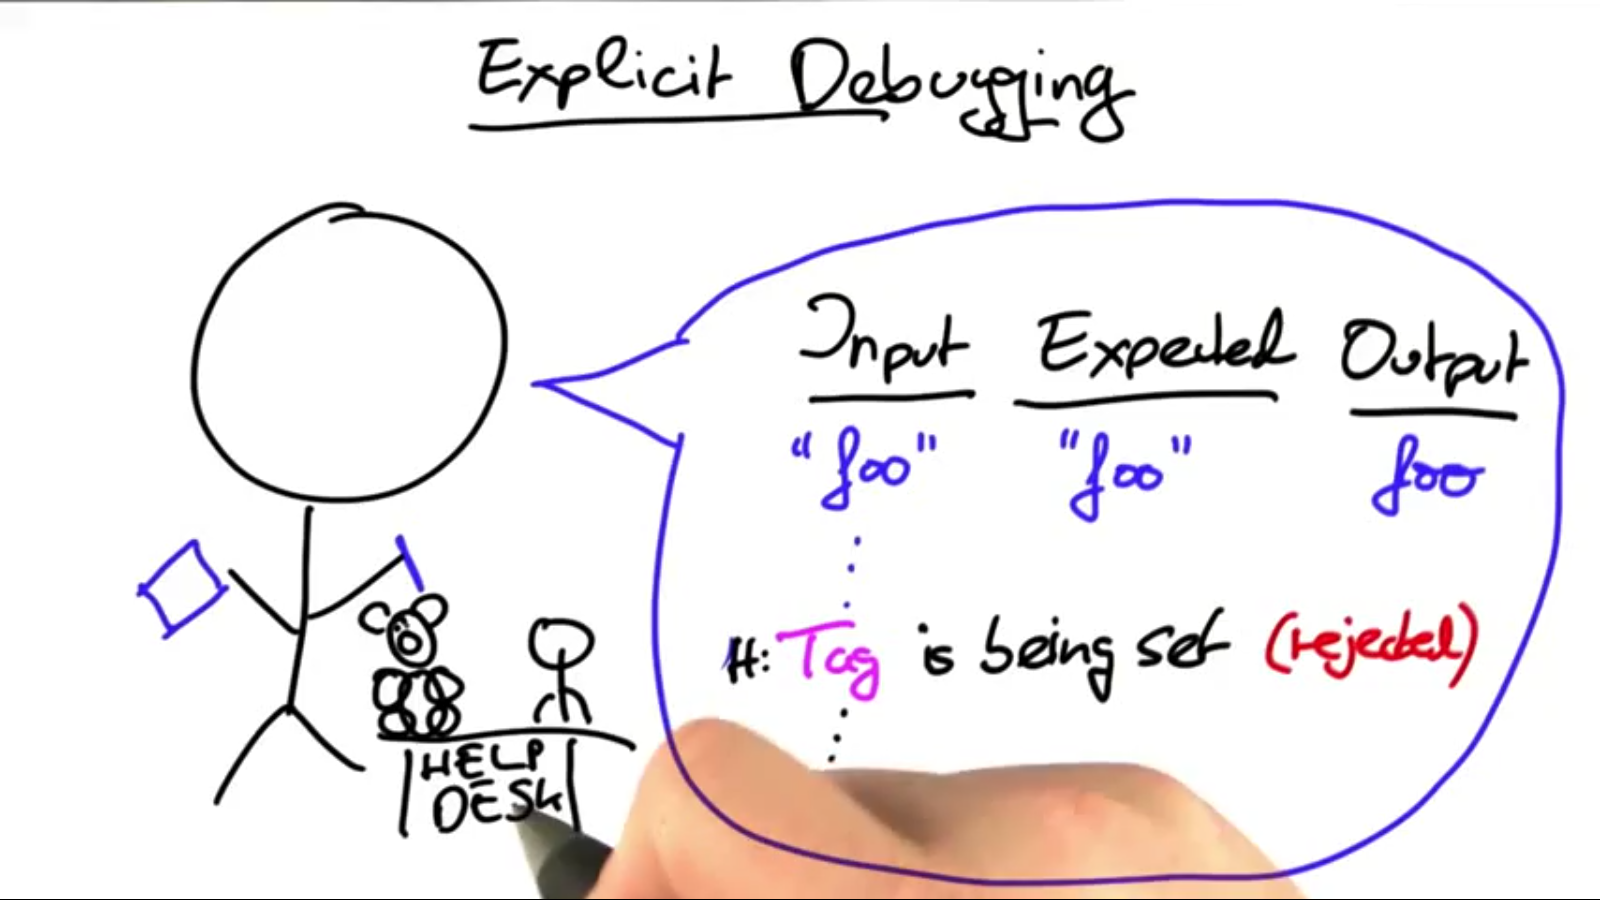 Explicit Debugging
Input Expected Output
"foo" "foo" foo
H: Tag is being set (rejected)
HELP
DESK